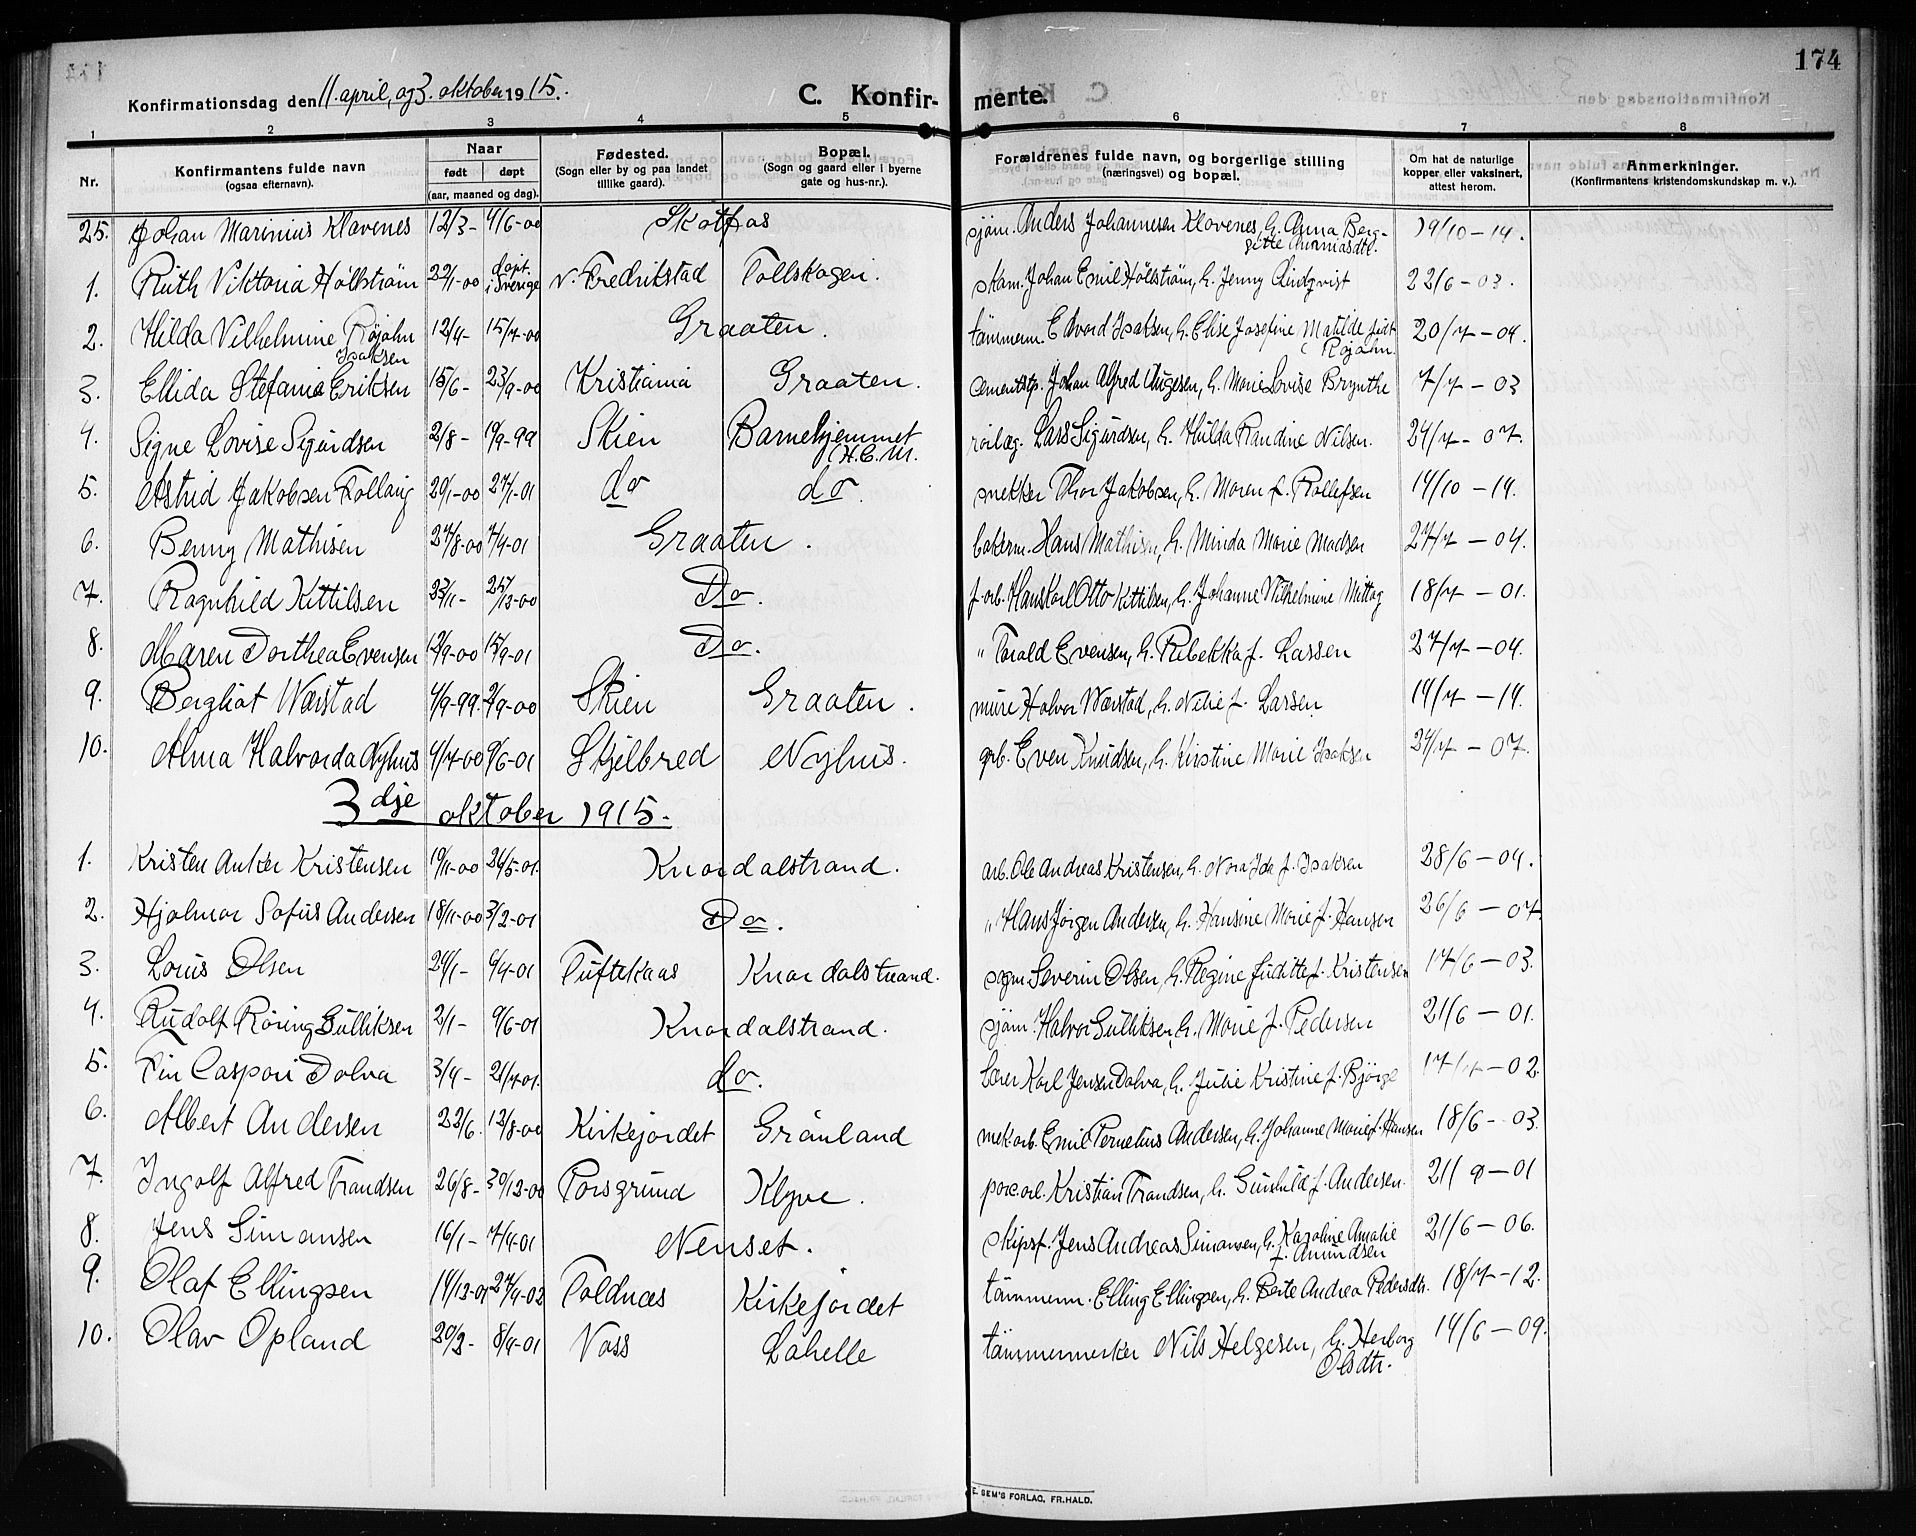 174
Konfirmationsdag den 11. april, og 3. oktober 1915.
C. Konfir- merte.
1 2 3 4 5 6 7 8
Nr. Konfirmantens fulde navn (ogsaa efternavn). Naar født døpt (aar, maaned og dag). Fødested. (Sogn eller by og paa landet tillike gaard). Bopæl. (Sogn og gaard eller i byerne gate og hus-nr.). Forældrenes fulde navn, og borgerlige stilling (næringsvei) og bopæl. Om hat de naturlige kopper eller vaksinert, attest herom. Anmerkninger. (Konfirmantens kristendomskundskap m. v.).
25. Johan Marinius Klovenes 12/3- 4/6-00 Skotfos sjöm. Anders Johannesen Klovenes, h. Anna Berg- 19/10-14.
1. Ruth Viktoria Höllström 22/1-00 döpt i Sverige N. Fredrikstad Tollskogen. skom. Johan Emil Höllström, h. Jenny Lindqvist 22/6-03.
2. Hilda Vilhelmine Röjahn 12/4- 15/7-00 Graaten. tömmerm. Edvard Isaksen, h. Elise Josefine Matilde födt 20/7-04.
Isaksen Røjahn.
3. Ellida Stefanie Eriksen 15/6- 23/9-00 Kristiania Graaten. Johan Alfred h. Marie Lovise 7/7-03
4. Signe Lovise Sigurdsen 2/8- Skien Barnehjemmet Lars Sigurdsen, h. Hulda Randine Nilsen. 24/7-07.
(H.C.M.
5. Astrid Jakobsen Follaug 20/1-00 27/1-01 do do. snekker Thor Jakobsen, h. Maren f. Rollefsen 14/10-14.
6. Benny Mathisen 27/8-00 7/4-01 Graaten. bakerm. Hans Mathisen, h. Minda Marie Madsen 27/7-04.
7. Ragnhild Kittilsen 23/11- 25/12-00 Do. f. arb. Hans Karl Otto Kittilsen, h. Johanne Vilhelmine Mittag 18/7-01.
8. Maren Dorthea Evensen 12/9-00 15/9-01 Do. " Torald Evensen, h. Rebekka f. Lassen 27/7-04.
9. Bergliot Wærstad 4/9-99. 2/9-00 Skien Graaten. mure Halvor Wærstad, h. f. Larsen 14/7-14.
10. Alma Halvorda Nyhus 4/7-00 9/6-01 Skjelbred Nyhus. Even Knudsen, h. Kirstine Marie Isaksen 24/7-07.
3dje oktober 1915.
1. Kristen Anker Kristensen 19/11-00 26/5-01. Knardalstrand. arb. Ole Andreas Kristensen, h. Nora Ida f. Isaksen 28/6-04.
2. Hjalmar Sofus Andersen 18/11-00 3/2-01 Do. " Hans Jörgen Andersen, h. Hansine Marie f. Hansen 26/6-07.
3. Louis Olsen 24/1- 9/4-01 Tuftekaas Knardalstrand. Severin Olsen, h. Regine Juditte f. Kristensen 17/6-03.
4. Rudolf Röring Gulliksen 2/1- 9/6-01 Knardalstrand. sjöm. Halvor Gulliksen, h. Marie f. Pedersen 21/6-01.
5. Fin Caspari Dolva 3/4- 21/7-01. do. Lærer Karl Jensen Dolva, h. Julie Kristine f. Björge 17/7-02.
6. Albert Andersen 22/6. 12/8-00 Kirkejordet Grönland mek. arb. Emil Andersen, h. Johanne Marie f. Hansen 18/6-03.
7. Ingolf Alfred Frandsen 26/8- 30/12-00 Porsgrund Klyve. Kristian Frandsen, h. Gunhild f. Andersen. 21/9-01
8. Jens Simonsen 16/1- 7/4-01 Nenset. skipsf. Jens Andreas Simonsen, h. Karoline Amalie 21/6-06.
f. Amundsen
9. Olaf Ellingsen 14/12-01 27/4-02 Toldnæs Kirkejordet tömmerm. Elling Ellingsen, h. Berte Andrea Pedersdtr. 18/7-12.
10. Olav Opland 20/2- 8/4-01 Voss Lahelle tömmermerker Nils Helgesen, h. Herborg 14/6-09.
Olsdtr.
E. SEM'S FORLAG, FR.HALD.